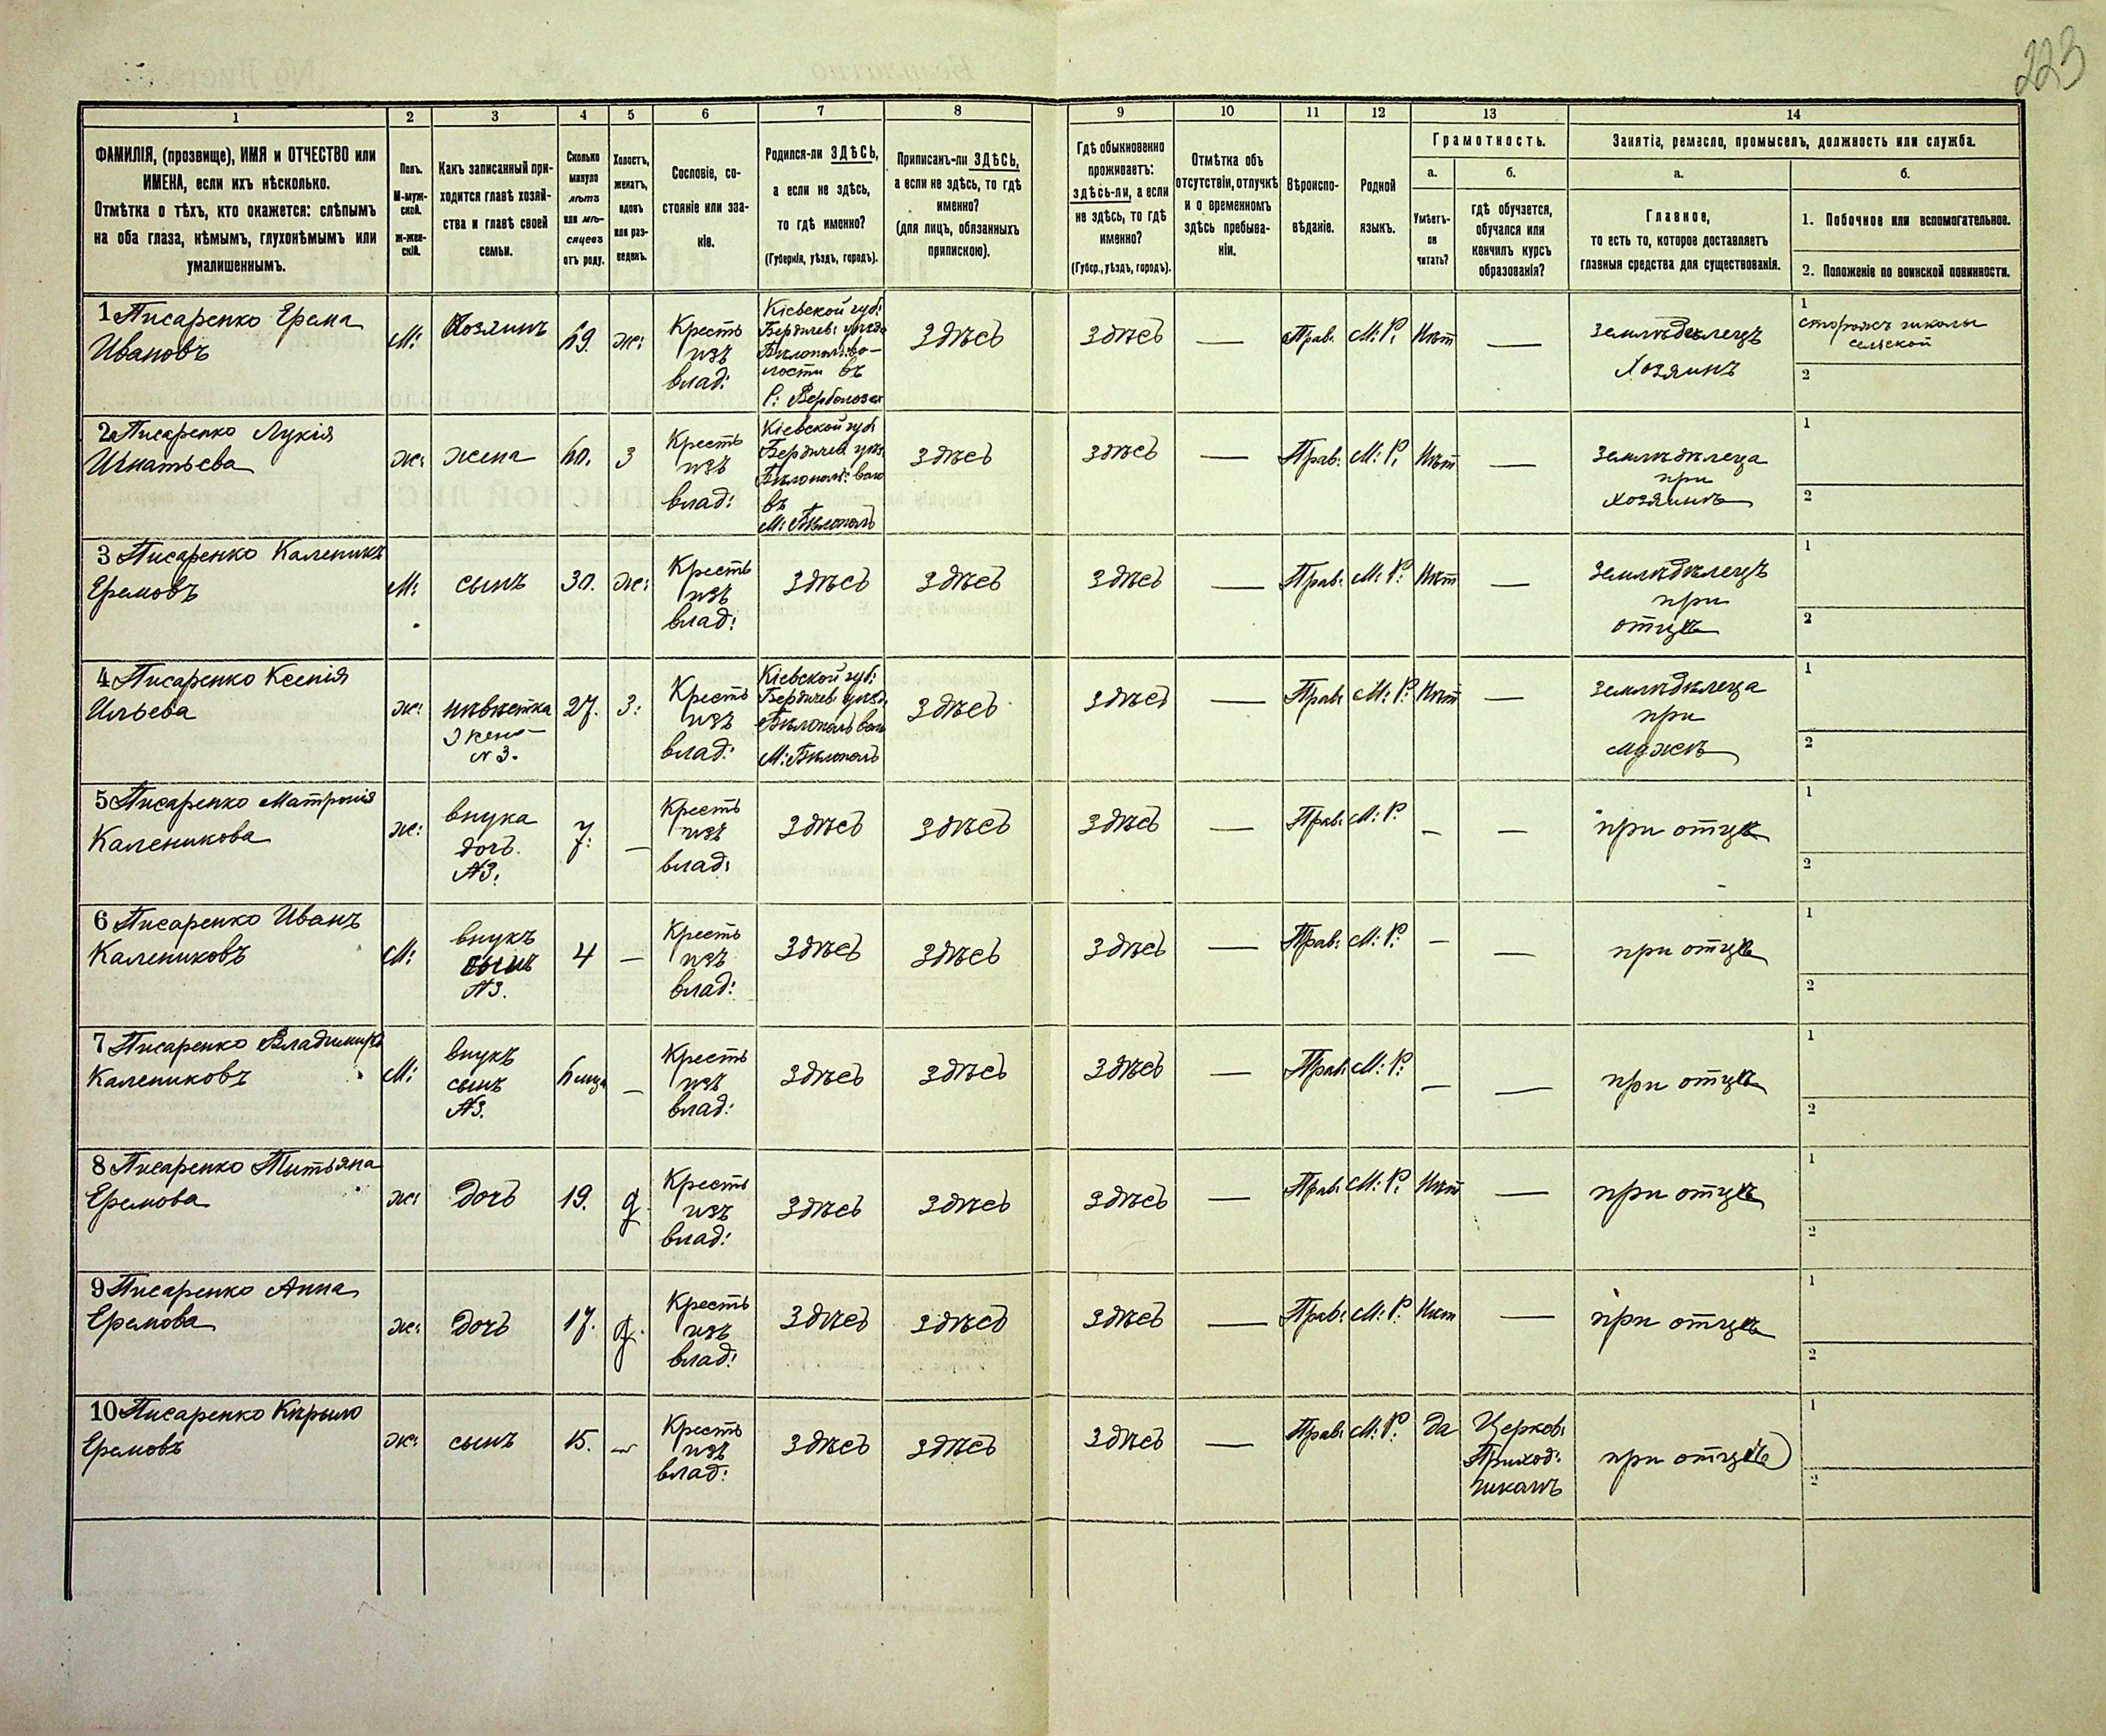 223
1 2 3 4 5 6 7 8 9 10 11 12 13 14
ФАМИЛІЯ, (прозвище), ИМЯ и ОТЧЕСТВО или
ИМЕНА, если ихъ нѣсколько.
Отмѣтка о тѣхъ, кто окажется: слѣпымъ
на оба глаза, нѣмымъ, глухонѣмымъ или
умалишеннымъ.
Полъ.
М-муж-
ской.
Ж-жен-
скій.
Какъ записанный при-
ходится главѣ хозяй-
ства и главѣ своей
семьи.
Сколько
минуло
лѣтъ
или мѣ-
сяцевъ
отъ роду.
Холостъ,
женатъ,
вдовъ
или раз-
веденъ.
Сословіе, со-
стояніе или зва-
ніе.
Родился-ли ЗДѢСЬ,
а если не здѣсь,
то гдѣ именно?
(Губернія, уѣздъ, городъ).
Приписанъ-ли ЗДѢСЬ,
а если не здѣсь, то гдѣ
именно?
(для лицъ, обязанныхъ
припискою).
Гдѣ обыкновенно
проживаетъ:
здѣсь-ли, а если
не здѣсь, то гдѣ
именно?
(Губер., уѣздъ, городъ).
Отмѣтка объ
отсутствіи, отлучкѣ
и о временномъ
здѣсь пребыва-
ніи.
Вѣроиспо-
вѣданіе.
Родной
языкъ.
Грамотность.
а.
Умѣетъ-
ли
читать?
б.
гдѣ обучается,
обучался или
кончилъ курсъ
образованія?
Занятія, ремесло, промыселъ, должность или служба.
а.
Главное,
то есть то, которое доставляетъ
главныя средства для существованія.
б.
1. Побочное или вспомогательное.
2. Положеніе по воинской повинности.
1 Писаренко Ерема
Ивановъ
М:
Хозяинъ
69.
ж:
Кресть
изъ
влад:
Кіевской губ:
Бердичев: уѣзда
Бѣлополь: во-
лости въ
С:
Здѣсь
Здѣсь
—
Прав:
М: Р:
Нѣт
—
Землѣдѣлецъ
Хозяинъ
1
сторожъ школы
сельской
2
2 Писаренко Лукія
Игнатьева
ж:
жена
60.
З
Кресть
изъ
влад:
Кіевской губ
Бердичев уѣз
Бѣлополь: воло
въ
М: Бѣлополь
здѣсь
здѣсь
—
Прав:
М: Р:
Нѣт
—
Землѣдѣлеца
при
хозяинѣ
1
2
3 Писаренко Каленикъ
Еремовъ
М:
сынъ
30.
ж:
Кресть
изъ
влад:
Здѣсь
Здѣсь
Здѣсь
—
Прав:
М: Р:
Нѣт
—
Землѣдѣлецъ
при
отцѣ
1
2
4 Писаренко Ксенія
Ильева
ж:
невѣстка
жена
N 3.
27.
З:
Кресть
изъ
влад:
Кіевской губ:
Бердичев уѣзд:
Бѣлополь воло
М: Бѣлополь
здѣсь
здѣсь
—
Прав:
М: Р:
Нѣт
—
Землѣдѣлеца
при
мужѣ
1
2
5 Писаренко Матронія
Каленикова
ж:
внука
дочь.
N3:
7:
—
Кресть
изъ
влад:
Здѣсь
Здѣсь
Здѣсь
—
Прав:
М: Р.
—
—
при отцѣ
1
2
6 Писаренко Иванъ
Калениковъ
М:
внукъ
сынъ
N3.
4
—
Кресть
изъ
влад:
Здѣсь
Здѣсь
Здѣсь
—
Прав:
М: Р:
—
—
при отцѣ
1
2
7 Писаренко Владимиръ
Калениковъ
М:
внукъ
сынъ
N3.
6 мѣся
—
Кресть
изъ
влад:
Здѣсь
Здѣсь
Здѣсь
—
Прав:
М: Р:
—
—
при отцѣ
1
2
8 Писаренко Тытьяна
Еремова
ж:
дочь
19.
д.
Кресть
изъ
влад:
Здѣсь
Здѣсь
Здѣсь
—
Прав:
М: Р:
Нѣт
—
при отцѣ
1
2
9 Писаренко Анна
Еремова
ж:
дочь
17.
д.
Кресть
изъ
влад:
Здѣсь
Здѣсь
Здѣсь
—
Прав:
М: Р:
Нѣт
—
при отцѣ
1
2
10 Писаренко Кѣрыло
Еремовъ
ж:
сынъ
15.
—
Кресть
изъ
влад:
Здѣсь
Здѣсь
Здѣсь
—
Прав:
М: Р:
Да
Церков:
Приход:
школѣ
при отцѣ
1
2